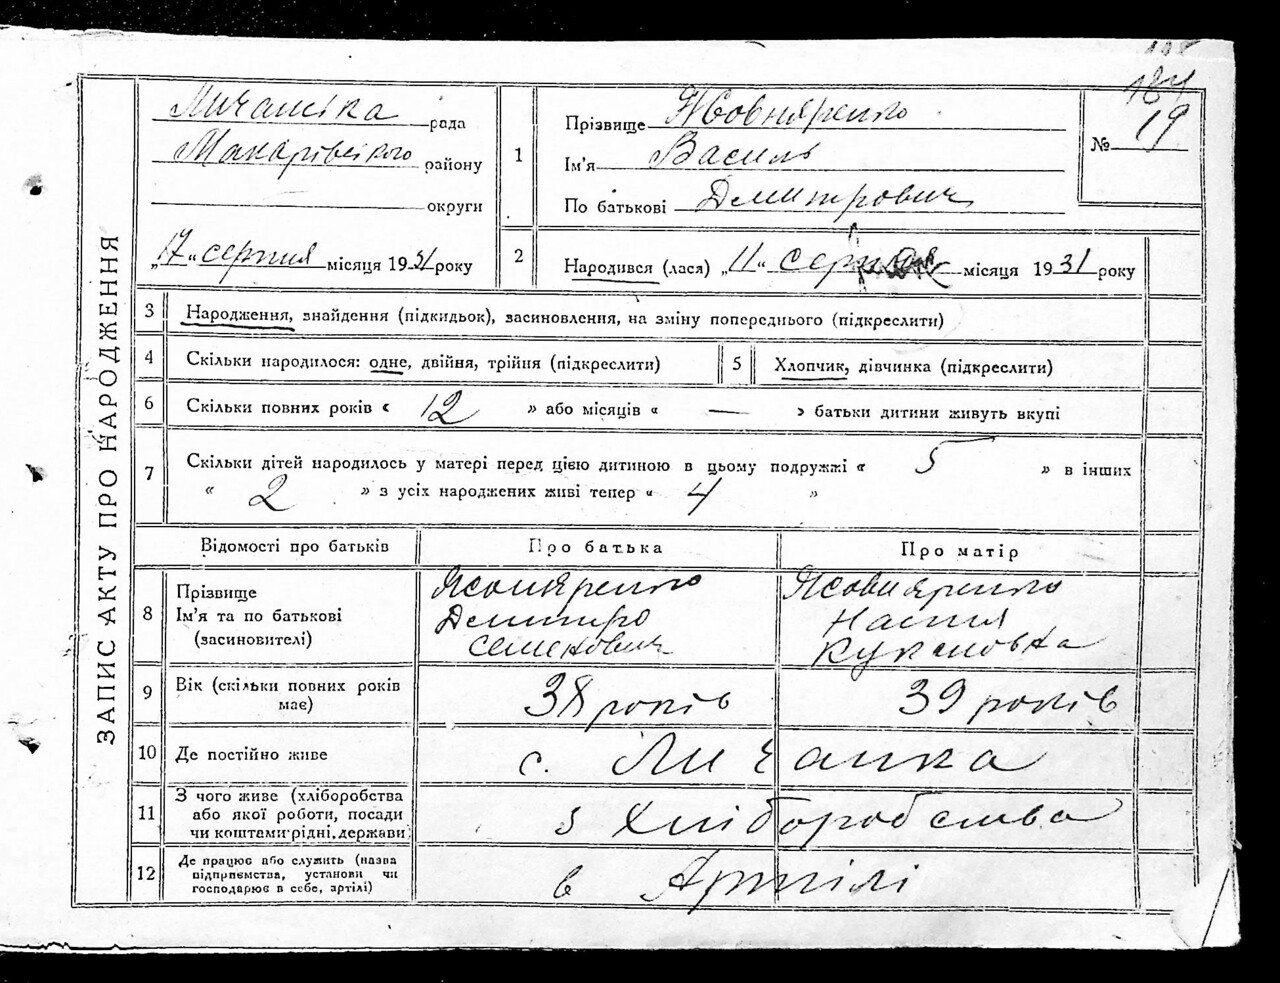 184
ЗАПИС АКТУ ПРО НАРОДЖЕННЯ
Личанська рада
Макарівського району
округи
„17“ серпня місяця 1931 року
1
Прізвище Жовняренко
Ім'я Василь
По батькові Дмитрович
№ 19
2
Народився (лася) „11“ серпня місяця 1931 року
3 Народження, знайдення (підкидьок), засиновлення, на зміну попереднього (підкреслити)
4 Скільки народилося: одне, двійня, трійня (підкреслити)
5 Хлопчик, дівчинка (підкреслити)
6 Скільки повних років « 12 » або місяців « — » батьки дитини живуть вкупі
7 Скільки дітей народилось у матері перед цією дитиною в цьому подружжі « 5 » в інших
« 2 » з усіх народжених живі тепер « 4 »
Відомості про батьків Про батька Про матір
8 Прізвище
Ім'я та по батькові
(засиновителі)
Дмитро
Семенович
Жовняренко
Настя
9 Вік (скільки повних років
має)
38 років 39 років
10 Де постійно живе с. Личанка
11 З чого живе (хліборобства
або якої роботи, посади
чи коштами рідні, держави)
з хліборобства
12 Де працює або служить (назва
підприємства, установи чи
господарює в себе, артілі)
в Артілі